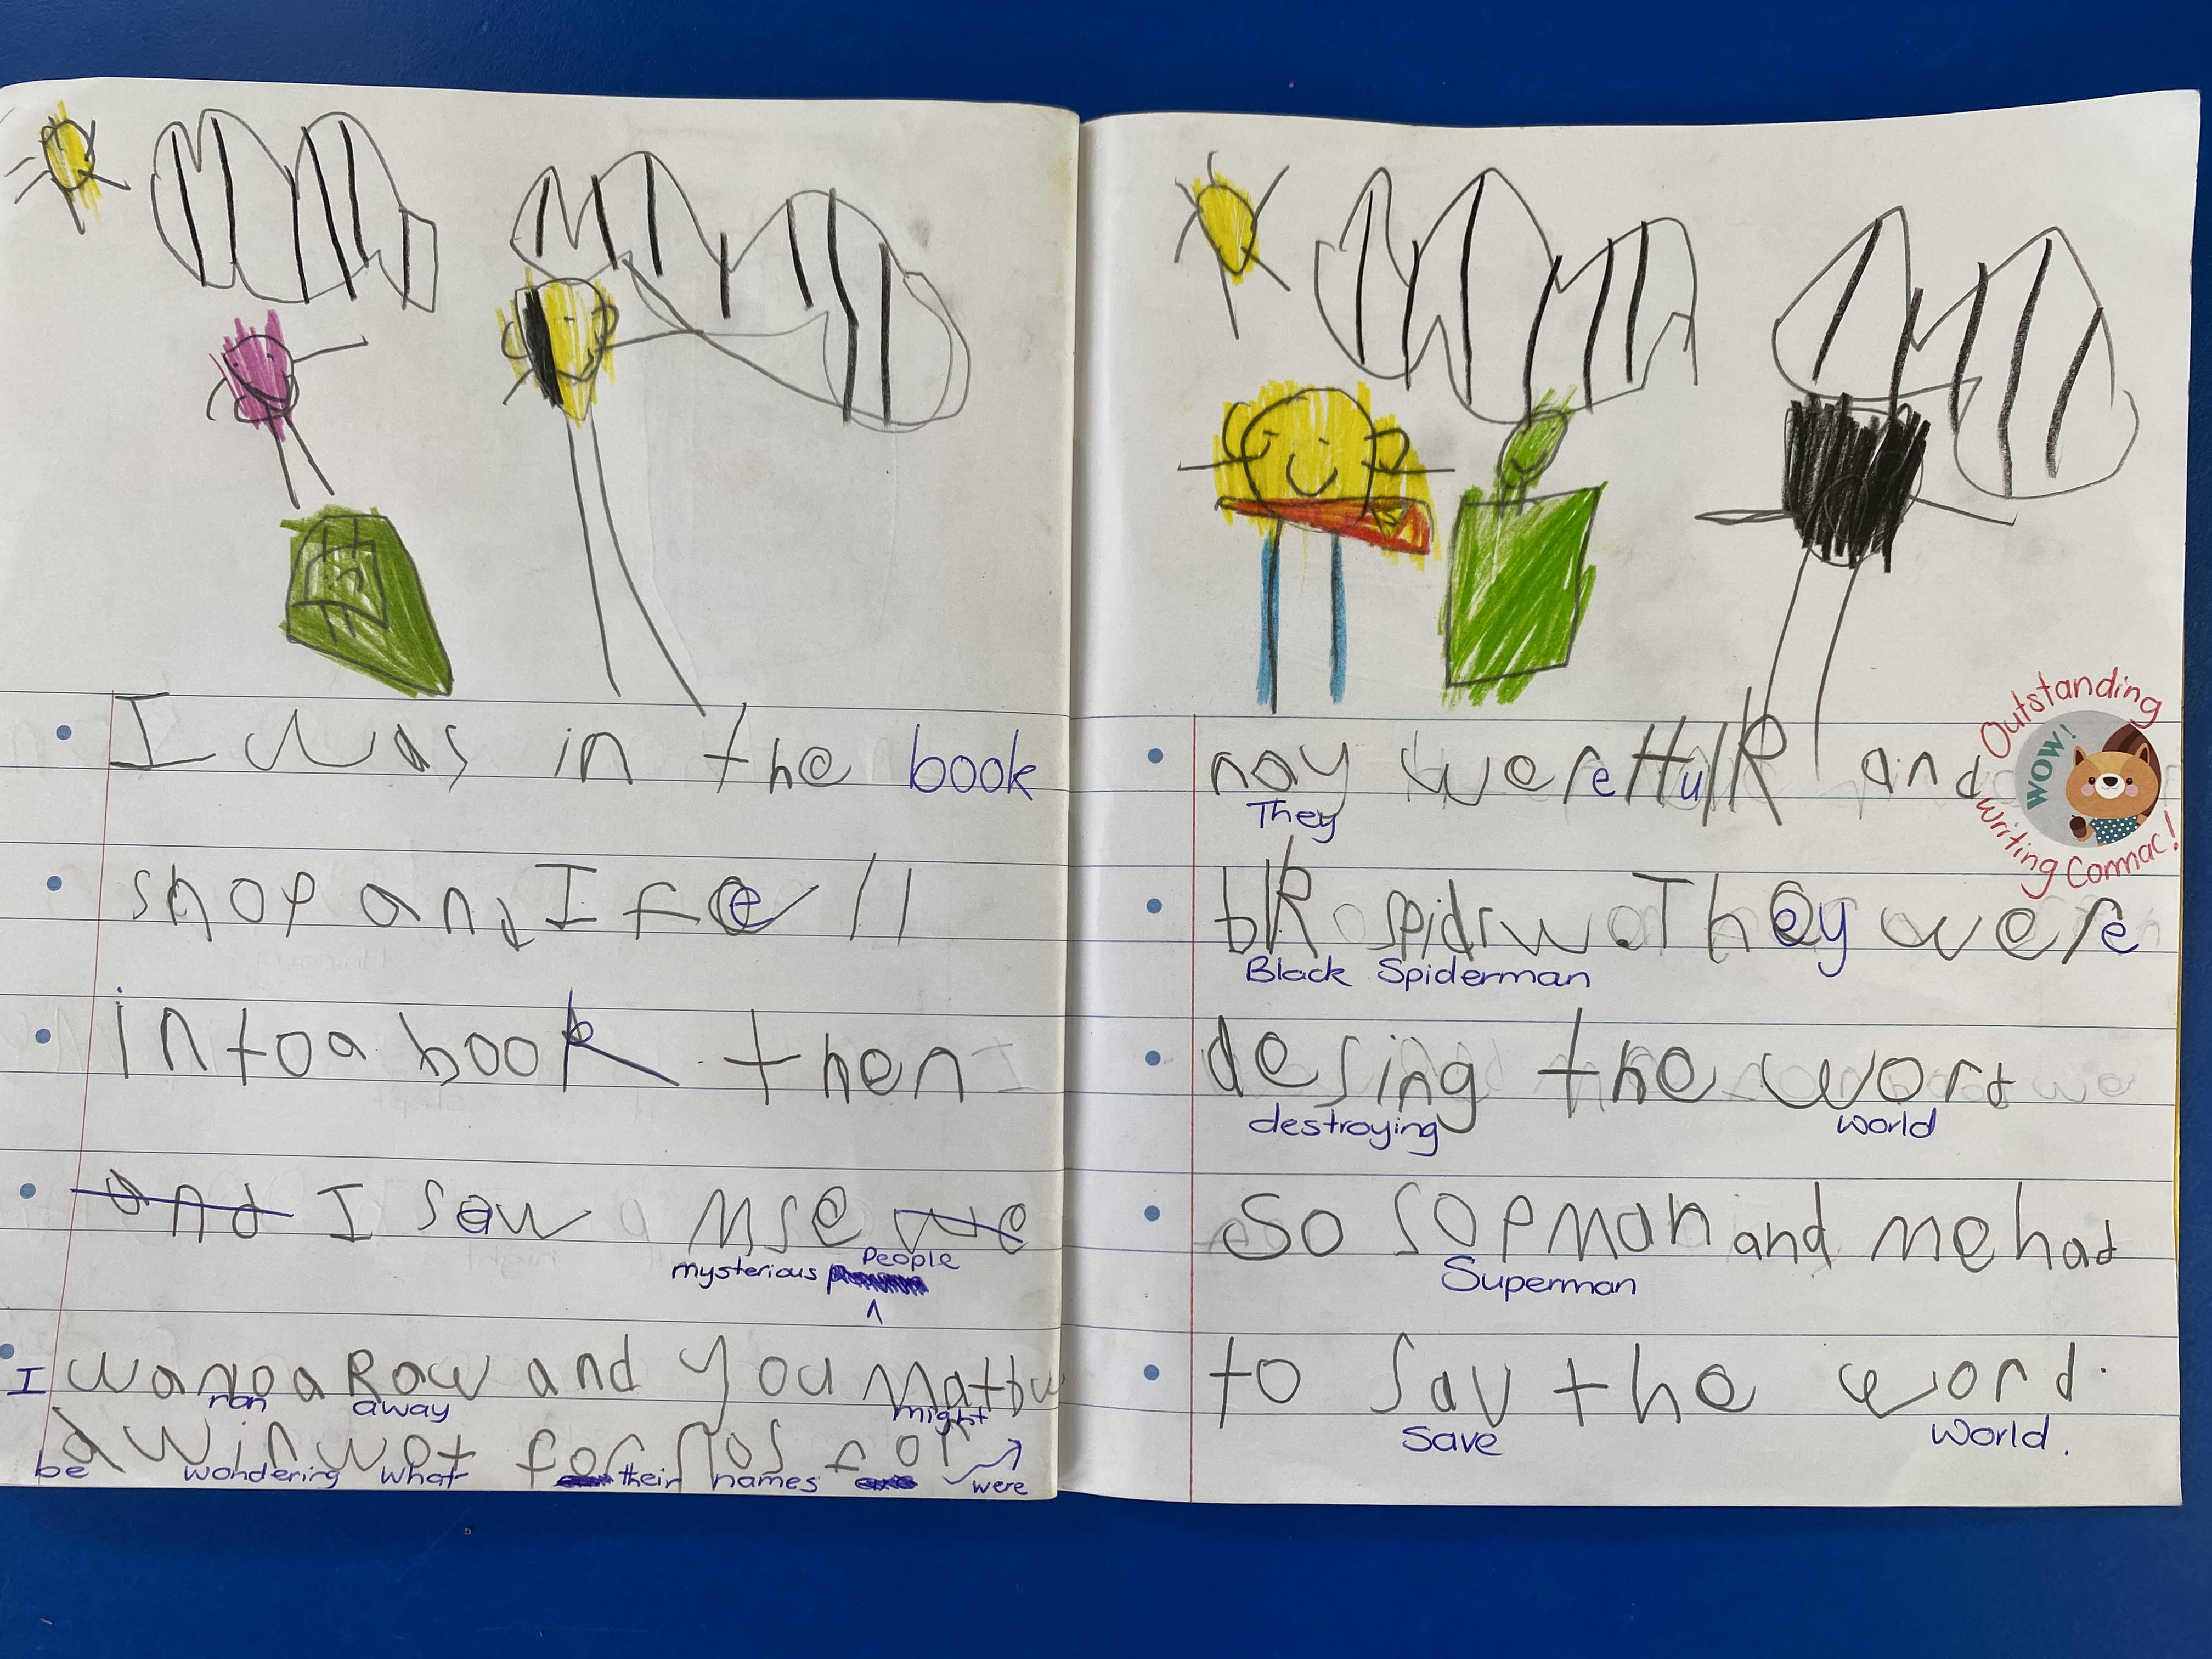 I was in the book
shop and I fell
into a book. then
and I saw a mse we
People
mysterious
I wa no a Raw and you Mat bu
ran away might
a win wot for nos r or
be wondering what their names were
nay were Hulk and
They
blk spidr w. They were
Black Spiderman
desing the word
destroying world
So sopman and me had
Superman
to sav the word.
save world.
Outstanding
WOW!
writing Cormac!